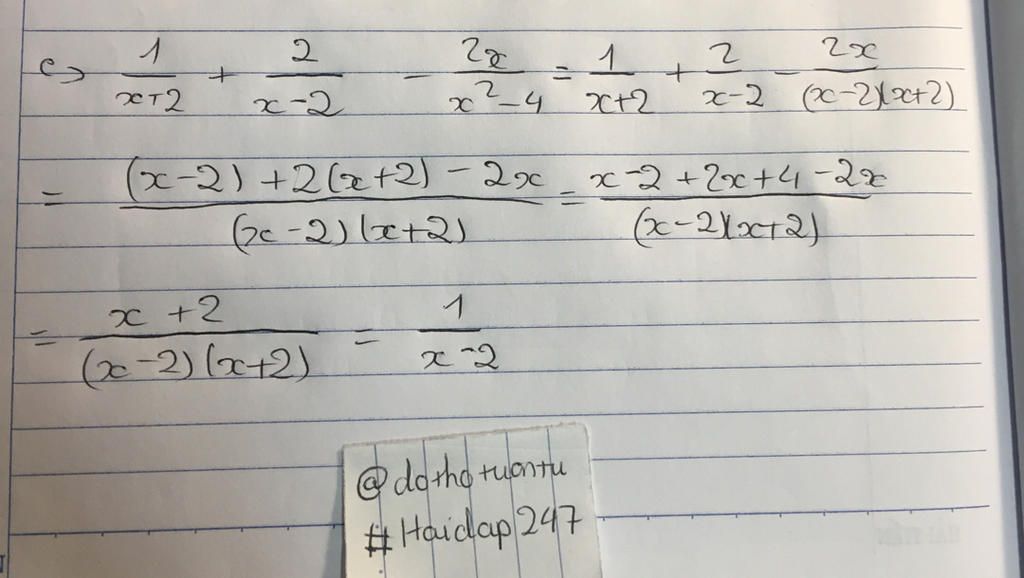 c) 1/(x+2) + 2/(x-2) - 2x/(x²-4) = 1/(x+2) + 2/(x-2) - 2x/((x-2)(x+2))
= ((x-2) + 2(x+2) - 2x)/((x-2)(x+2)) = (x-2+2x+4-2x)/((x-2)(x+2))
= (x+2)/((x-2)(x+2)) = 1/(x-2)
#Haidap247